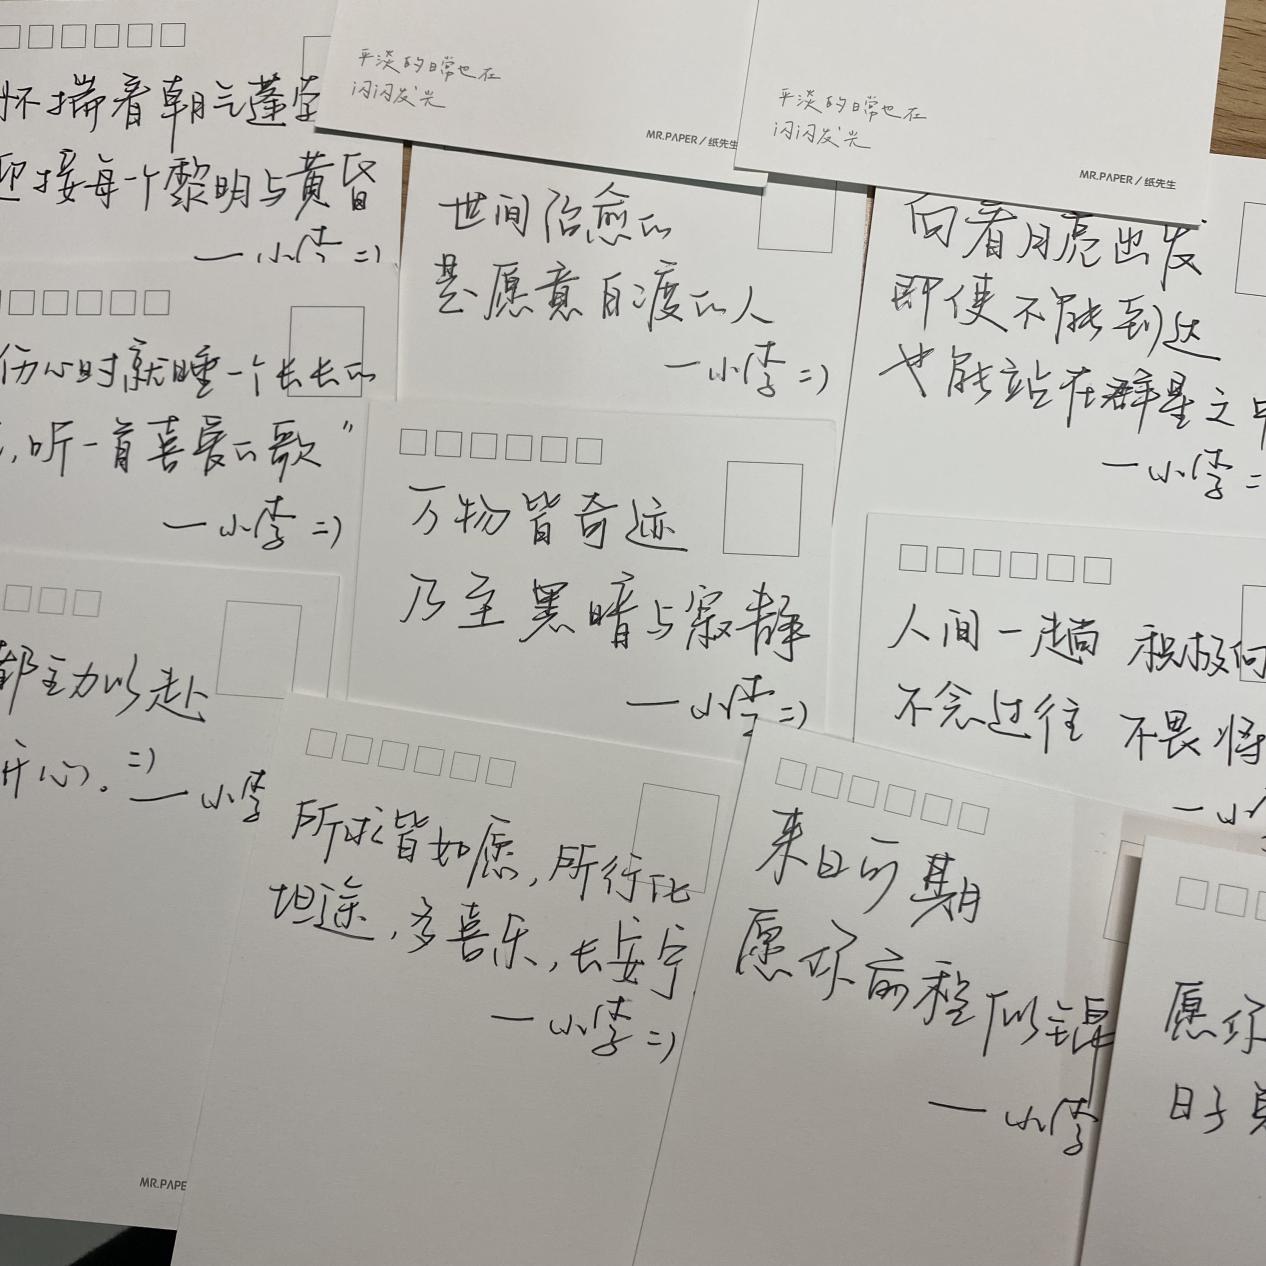 怀揣着朝气蓬
迎接每一个黎明与黄昏
—小李=)
平淡的日常也在
闪闪发光
MR.PAPER/纸先生
平淡的日常也在
闪闪发光
MR.PAPER/纸先生
世间治愈的
是愿意自渡的人
—小李=)
向着月亮出发
即使不能到达
也能站在群星之中
—小李=
伤心时就睡一个长长的
,听一首喜爱的歌”
—小李=)
万物皆奇迹
乃至黑暗与寂静
—小李=)
人间一趟 积极向
不念过往 不畏将
—小
都全力以赴
开心。=)
—小李
MR.PAPE
所求皆如愿,所行化
坦途,多喜乐,长安宁
—小李=)
来日可期
愿你前程似锦
—小李
愿你
日子